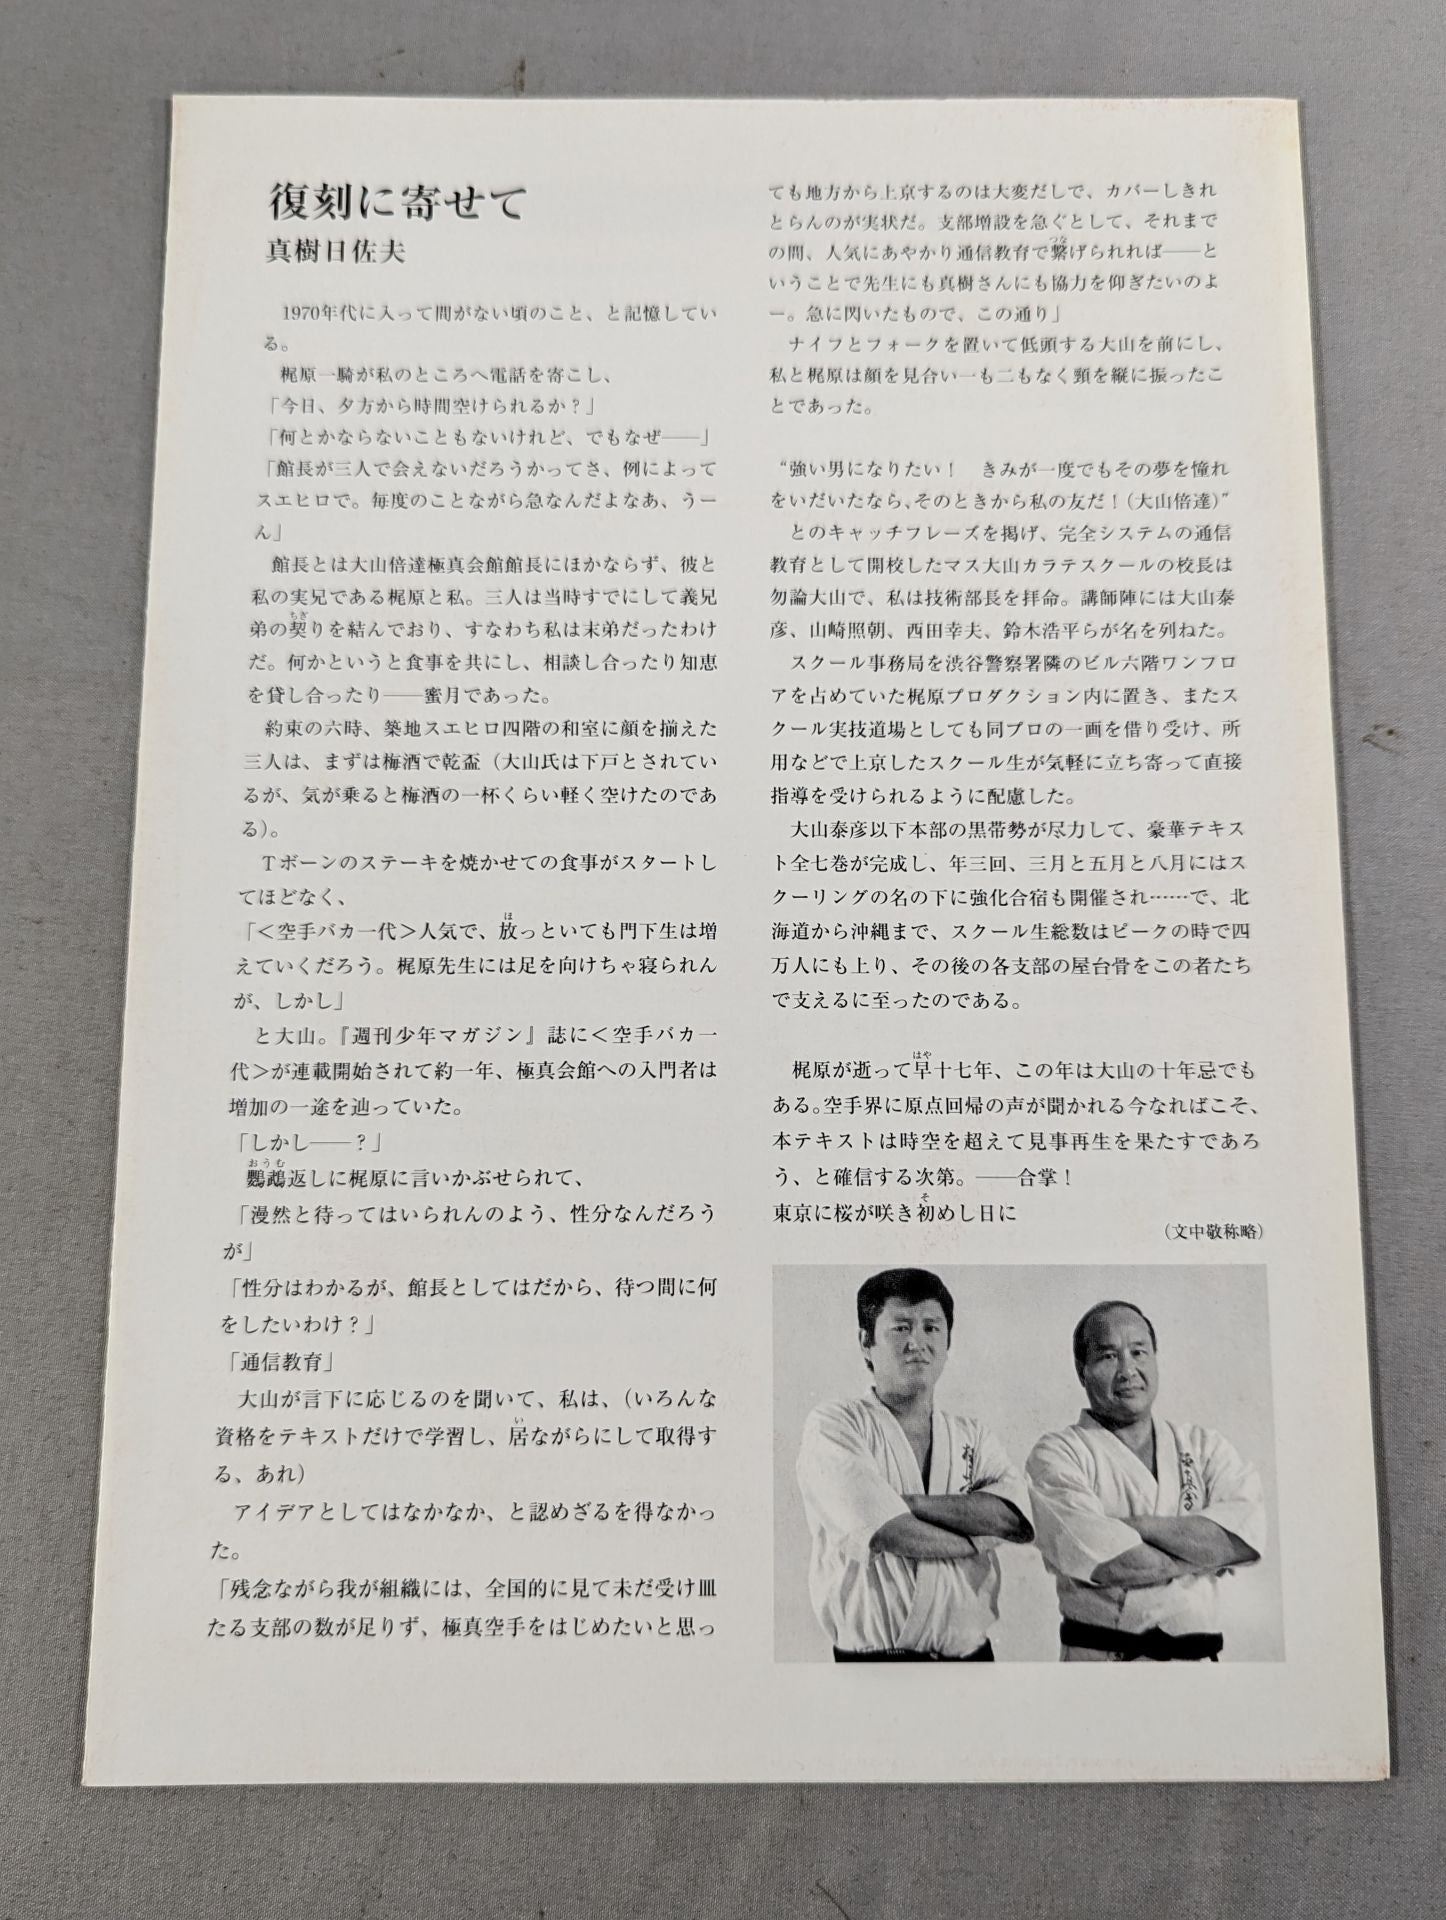 復刻に寄せて
真樹日佐夫
1970年代に入って間がない頃のこと、と記憶してい
る。
梶原一騎が私のところへ電話を寄こし、
「今日、夕方から時間空けられるか？」
「何とかならないこともないけれど、でもなぜ――」
「館長が三人で会えないだろうかってさ、例によって
スエヒロで。毎度のことながら急なんだよなあ、うー
ん」
館長とは大山倍達極真会館館長にほかならず、彼と
私の実兄である梶原と私。三人は当時すでにして義兄
弟の契りを結んでおり、すなわち私は末弟だったわけ
だ。何かというと食事を共にし、相談し合ったり知恵
を貸し合ったり――蜜月であった。
約束の六時、築地スエヒロ四階の和室に顔を揃えた
三人は、まずは梅酒で乾盃（大山氏は下戸とされてい
るが、気が乗ると梅酒の一杯くらい軽く空けたのであ
る）。
Tボーンのステーキを焼かせての食事がスタートし
てほどなく、
「＜空手バカ一代＞人気で、放っといても門下生は増
えていくだろう。梶原先生には足を向けちゃ寝られん
が、しかし」
と大山。『週刊少年マガジン』誌に＜空手バカ一
代＞が連載開始されて約一年、極真会館への入門者は
増加の一途を辿っていた。
「しかし――？」
鸚鵡返しに梶原に言いかぶせられて、
「漫然と待ってはいられんのよう、性分なんだろう
が」
「性分はわかるが、館長としてはだから、待つ間に何
をしたいわけ？」
「通信教育」
大山が言下に応じるのを聞いて、私は、（いろんな
資格をテキストだけで学習し、居ながらにして取得す
る、あれ）
アイデアとしてはなかなか、と認めざるを得なかっ
た。
「残念ながら我が組織には、全国的に見て未だ受け皿
たる支部の数が足りず、極真空手をはじめたいと思っ
ても地方から上京するのは大変だしで、カバーしきれ
とらんのが実状だ。支部増設を急ぐとして、それまで
の間、人気にあやかり通信教育で繋げられれば――と
いうことで先生にも真樹さんにも協力を仰ぎたいのよ
ー。急に閃いたもので、この通り」
ナイフとフォークを置いて低頭する大山を前にし、
私と梶原は顔を見合い一も二もなく頸を縦に振ったこ
とであった。
“強い男になりたい！　きみが一度でもその夢を憧れ
をいだいたなら、そのときから私の友だ！（大山倍達）”
とのキャッチフレーズを掲げ、完全システムの通信
教育として開校したマス大山カラテスクールの校長は
勿論大山で、私は技術部長を拝命。講師陣には大山泰
彦、山崎照朝、西田幸夫、鈴木浩平らが名を列ねた。
スクール事務局を渋谷警察署隣のビル六階ワンフロ
アを占めていた梶原プロダクション内に置き、またス
クール実技道場としても同プロの一画を借り受け、所
用などで上京したスクール生が気軽に立ち寄って直接
指導を受けられるように配慮した。
大山泰彦以下本部の黒帯勢が尽力して、豪華テキス
ト全七巻が完成し、年三回、三月と五月と八月にはス
クーリングの名の下に強化合宿も開催され……で、北
海道から沖縄まで、スクール生総数はピークの時で四
万人にも上り、その後の各支部の屋台骨をこの者たち
で支えるに至ったのである。
梶原が逝って早十七年、この年は大山の十年忌でも
ある。空手界に原点回帰の声が聞かれる今なればこそ、
本テキストは時空を超えて見事再生を果たすであろ
う、と確信する次第。――合掌！
東京に桜が咲き初めし日に
（文中敬称略）